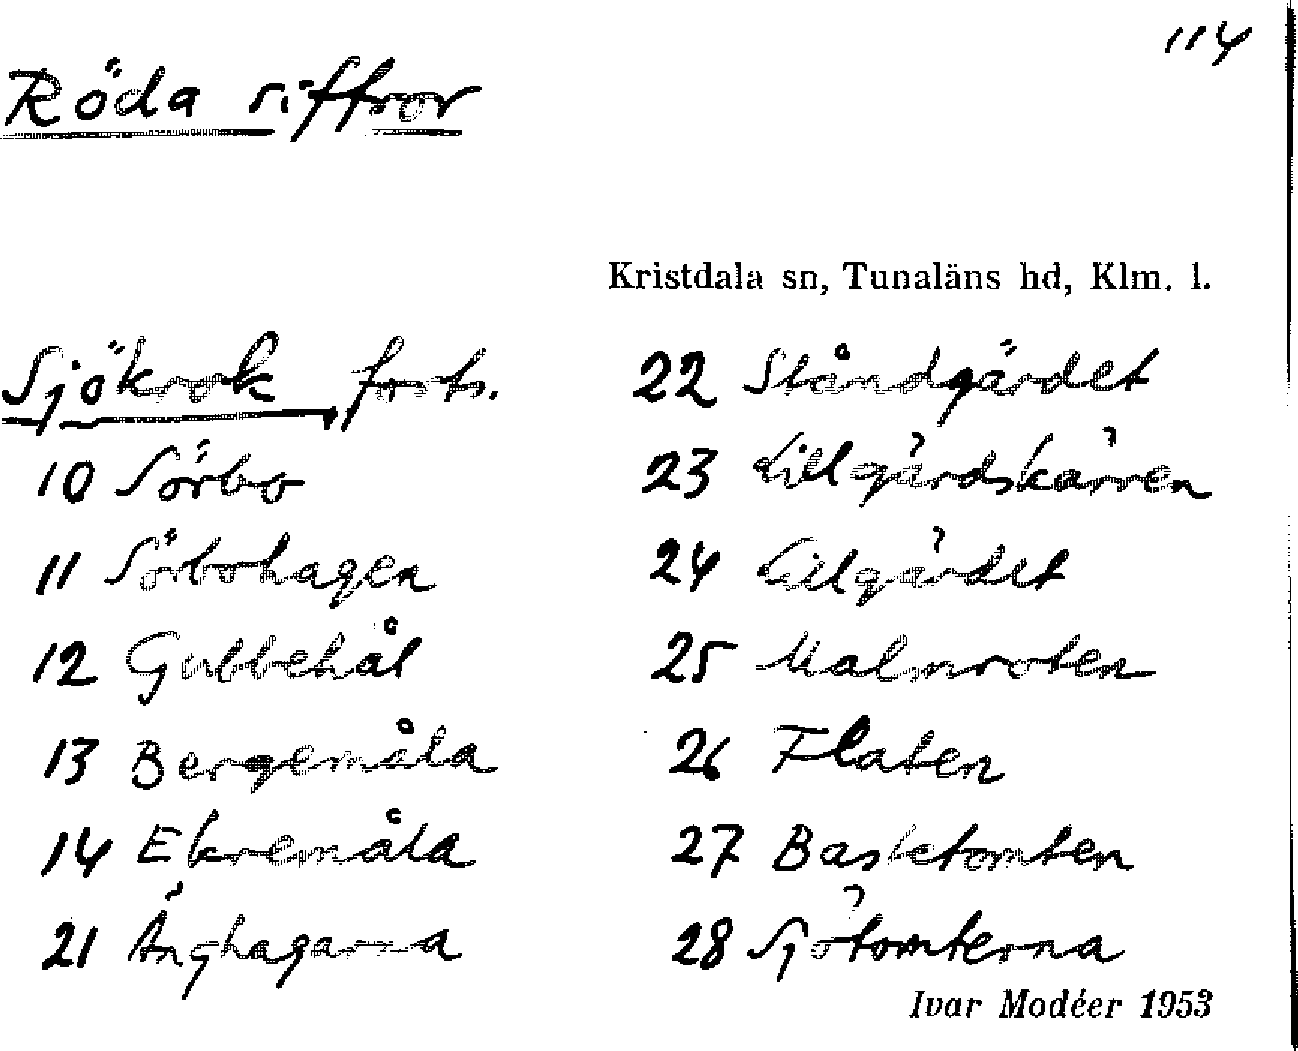 114
Röda siffror
Kristdala sn, Tunaläns hd, Klm. l.
Sjökrok, forts.
10 Sörbo
11 Sörbohagen
12 Gubbehål
13 Bergemåla
14 Ekremåla
21 Änghagarna
22 Ståndgärdet
23 Lillgärdskärren
24 Lillgärdet
25 Malmroten
26 Flaten
27 Basketomten
28 Sjötomterna
Ivar Modéer 1953